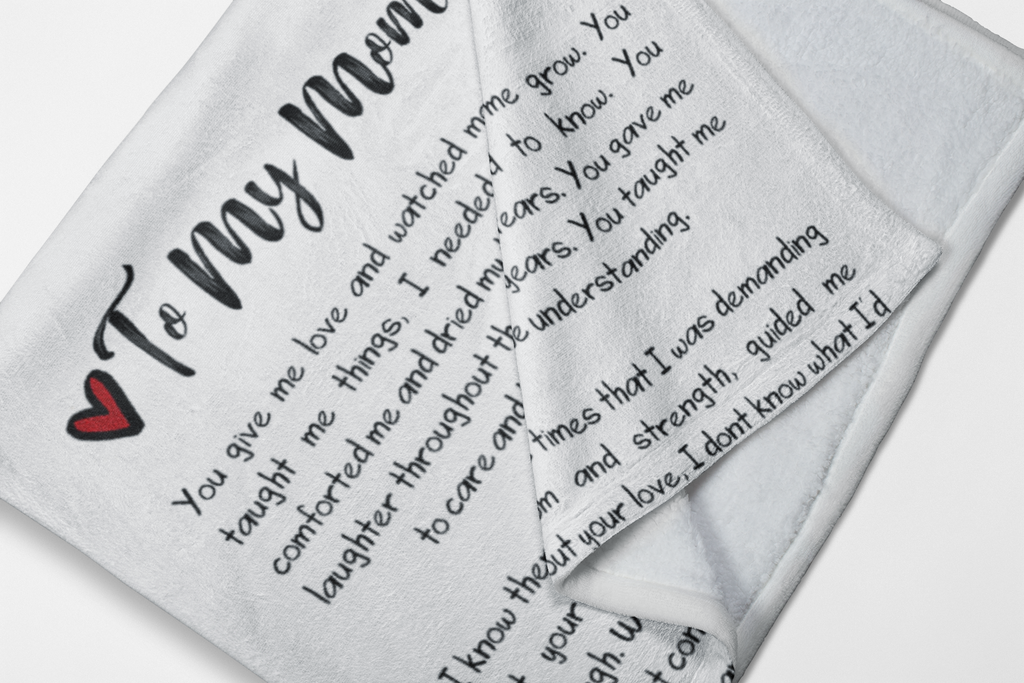 To My Mom
You give me love and watched me grow. You
taught me things, I needed to know. You
comforted me and dried my ears. You gave me
laughter throughout the years. You taught me
to care and understanding.
I know the times that I was demanding
your and strength, guided me
but your love, I dont know what I'd